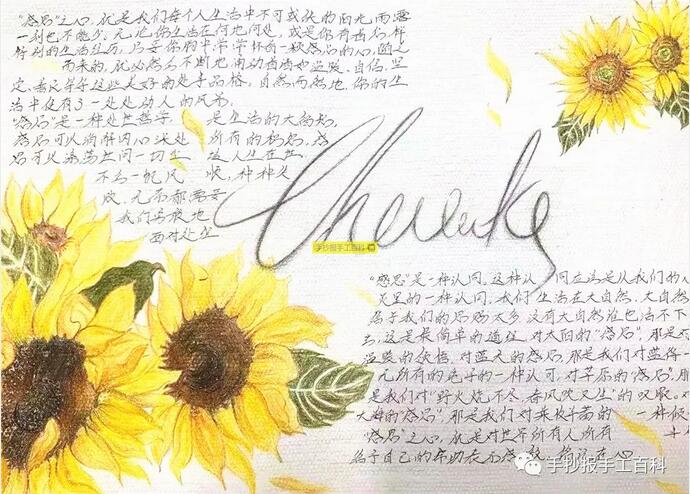 "感恩"之心,就是我们每个人生活中不可或缺的阳光雨露
一刻也不能少。无论你生活在何地何处,或是你有着怎样
特别的生活经历,只要你胸中常常怀着一颗感恩的心,随之
而来的,就必然会不断地涌动着诸如温暖、自信、坚
定、善良等等这些美好的处事品格。自然而然地,你的生
活中便有了一处处动人的风景。
"感恩"是一种处世哲学, 是生活的大智慧,
感恩可以消解内心深处 所有的积怨,感
恩可以涤荡世间一切尘 人生在世,
不可一帆风 种种
败、无奈都需要
我们勇敢地
面对处
Thanks
手抄报手工百科
"感恩"是一种认同。这种认 同应该是从我们的
灵里的一种认同。我们 生活在大自然,大自然
给予我们的恩赐太多。没有大自然谁也活不下
去,这是最简单的道理。对太阳的"感恩",那是对
温暖的领悟。对蓝天的感恩,那是我们对蓝得一
无所有的 的一种认可。对草原的"感恩",那
是我们对"野火烧不尽,春风吹又生"的叹服。对
大海的"感恩",那是我们对兼收并蓄的 一种倾
"感恩"之心,就是对世界所有人所有
给予自己的帮助表示感 在心
手抄报手工百科